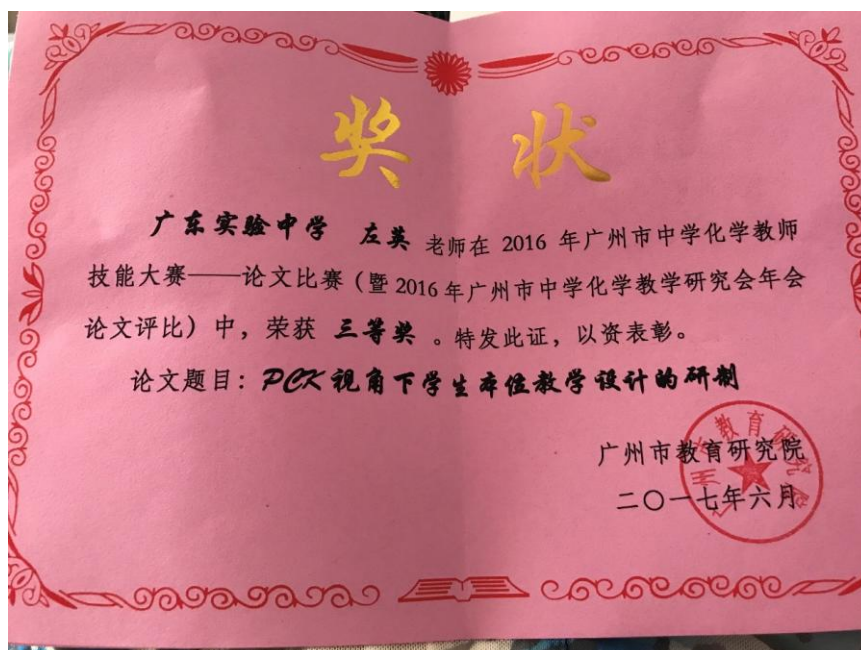 奖 状
广东实验中学 左英 老师在 2016 年广州市中学化学教师
技能大赛——论文比赛（暨 2016 年广州市中学化学教学研究会年会
论文评比）中，荣获 三等奖 。特发此证，以资表彰。
论文题目：PCK 视角下学生本位教学设计的研制
广州市教育研究院
二〇一七年六月
广州市教育研究院